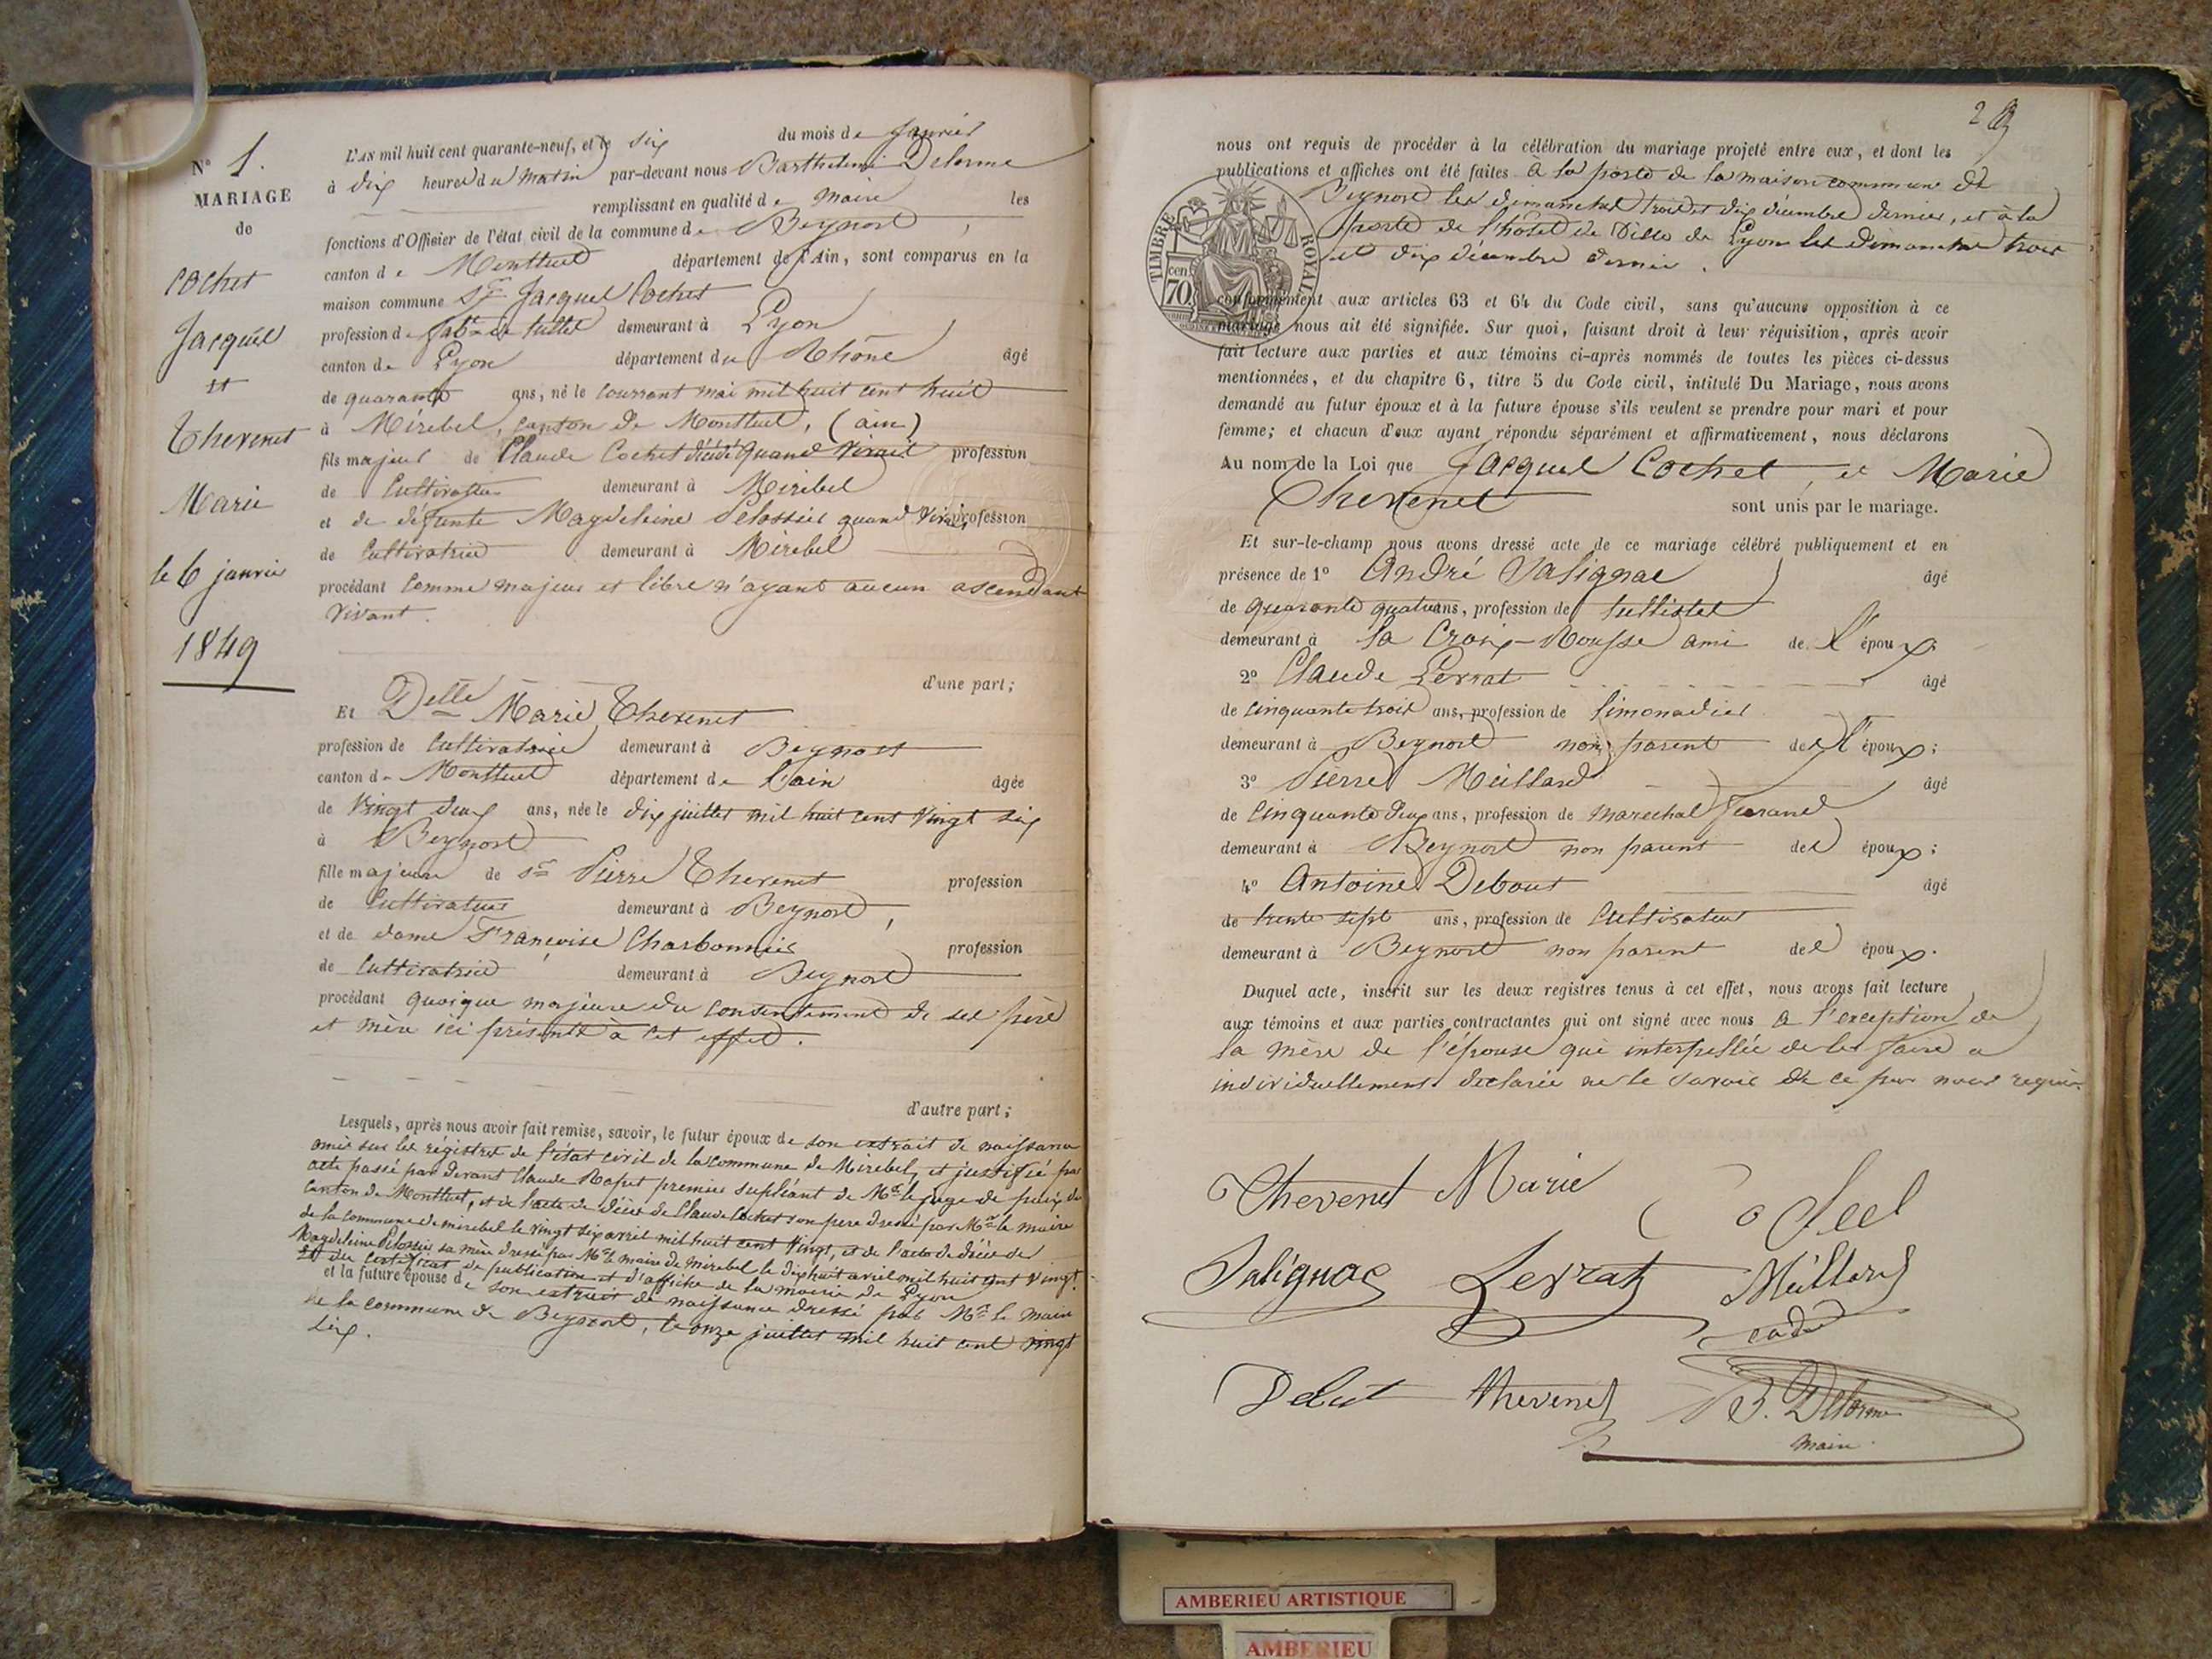 N° 1.
MARIAGE
de
Cochet
Jacques
et
Thevenet
Marie
le 6 janvier
1849
L'AN mil huit cent quarante-neuf, et le six du mois de Janvier
à dix heures du matin par-devant nous Barthelemi Delorme
remplissant en qualité de maire les
fonctions d'Officier de l'état civil de la commune de Beynost,
canton de Montluel département de l'Ain, sont comparus en la
maison commune Sr Jacques Cochet
profession de fabt de tulles demeurant à Lyon,
canton de Lyon département du Rhône âgé
de quarante ans, né le courrant mai mil huit cent huit
à Mirebel, canton de Montluel, (ain)
fils majeur de Claude Cochet décédé quand vivait profession
de Cultivateur demeurant à Mirebel
et de défunte Magdeleine Pelossier quand vivait profession
de Cultivatrice demeurant à Mirebel
procédant comme majeur et libre n'ayant aucun ascendant
vivant.
d'une part;
Et Delle Marie Thevenet
profession de Cultivatrice demeurant à Beynost
canton de Montluel département de l'ain âgée
de vingt deux ans, née le dix juillet mil huit cent vingt six
à Beynost
fille majeure de Sr Pierre Thevenet profession
de Cultivateur demeurant à Beynost,
et de dame Françoise Charbonnier profession
de Cultivatrice demeurant à Beynost
procédant quoique majeure du consentement de ses père
et mère ici présents à cet effet.
d'autre part;
Lesquels, après nous avoir fait remise, savoir, le futur époux de son extrait de naissance
omis sur les régistres de l'état civil de la commune de Mirebel, et justifié par
acte passé par devant Claude Rapet premier supléant de Mr le juge de paix du
canton de Montluel, et de l'acte de décès de Claude Cochet son pere dressé par Mr le maire
de la commune de mirebel le vingt six avril mil huit cent vingt, et de l'acte de décès de
Magdeleine Pelossier sa mère dressé par Mr le maire de mirebel le dix huit avril mil huit cent vingt.
et du certificat de publication et d'affiche de la mairie de Lyon
et la future épouse de son extrait de naissance dressé par Mr le maire
de la commune de Beynost, le onze juillet mil huit cent vingt
six.
nous ont requis de procéder à la célébration du mariage projeté entre eux, et dont les
publications et affiches ont été faites à la porte de la maison commune de
Beynost les dimanches trois et dix décembre dernier, et à la
porte de l'hôtel de Ville de Lyon les dimanches trois
et dix décembre dernier.
TIMBRE ROYAL
70 cen
conformément aux articles 63 et 64 du Code civil, sans qu'aucune opposition à ce
mariage nous ait été signifiée. Sur quoi, faisant droit à leur réquisition, après avoir
fait lecture aux parties et aux témoins ci-après nommés de toutes les pièces ci-dessus
mentionnées, et du chapitre 6, titre 5 du Code civil, intitulé Du Mariage, nous avons
demandé au futur époux et à la future épouse s'ils veulent se prendre pour mari et pour
femme; et chacun d'eux ayant répondu séparément et affirmativement, nous déclarons
Au nom de la Loi que Jacques Cochet et Marie
Thevenet sont unis par le mariage.
Et sur-le-champ nous avons dressé acte de ce mariage célébré publiquement et en
présence de 1° André Salignac âgé
de quarante quatre ans, profession de tulliste
demeurant à la Croix-Rousse ami de l'époux
2° Claude Levrat âgé
de cinquante trois ans, profession de limonadier
demeurant à Beynost non parent de l'époux;
3° Pierre Meillard âgé
de cinquante deux ans, profession de marechal ferrand
demeurant à Beynost non parent de l époux;
4° Antoine Debout âgé
de trente sept ans, profession de Cultivateur
demeurant à Beynost non parent de l époux.
Duquel acte, inscrit sur les deux registres tenus à cet effet, nous avons fait lecture
aux témoins et aux parties contractantes qui ont signé avec nous à l'exception de
la mère de l'épouse qui interpellée de le faire a
individuellement declarée ne le savoir de ce par nous requis.
Thevenet Marie
Salignac Levrat Meillard
cadet
Debut thevenet B. Delorme
maire
AMBERIEU ARTISTIQUE
AMBERIEU